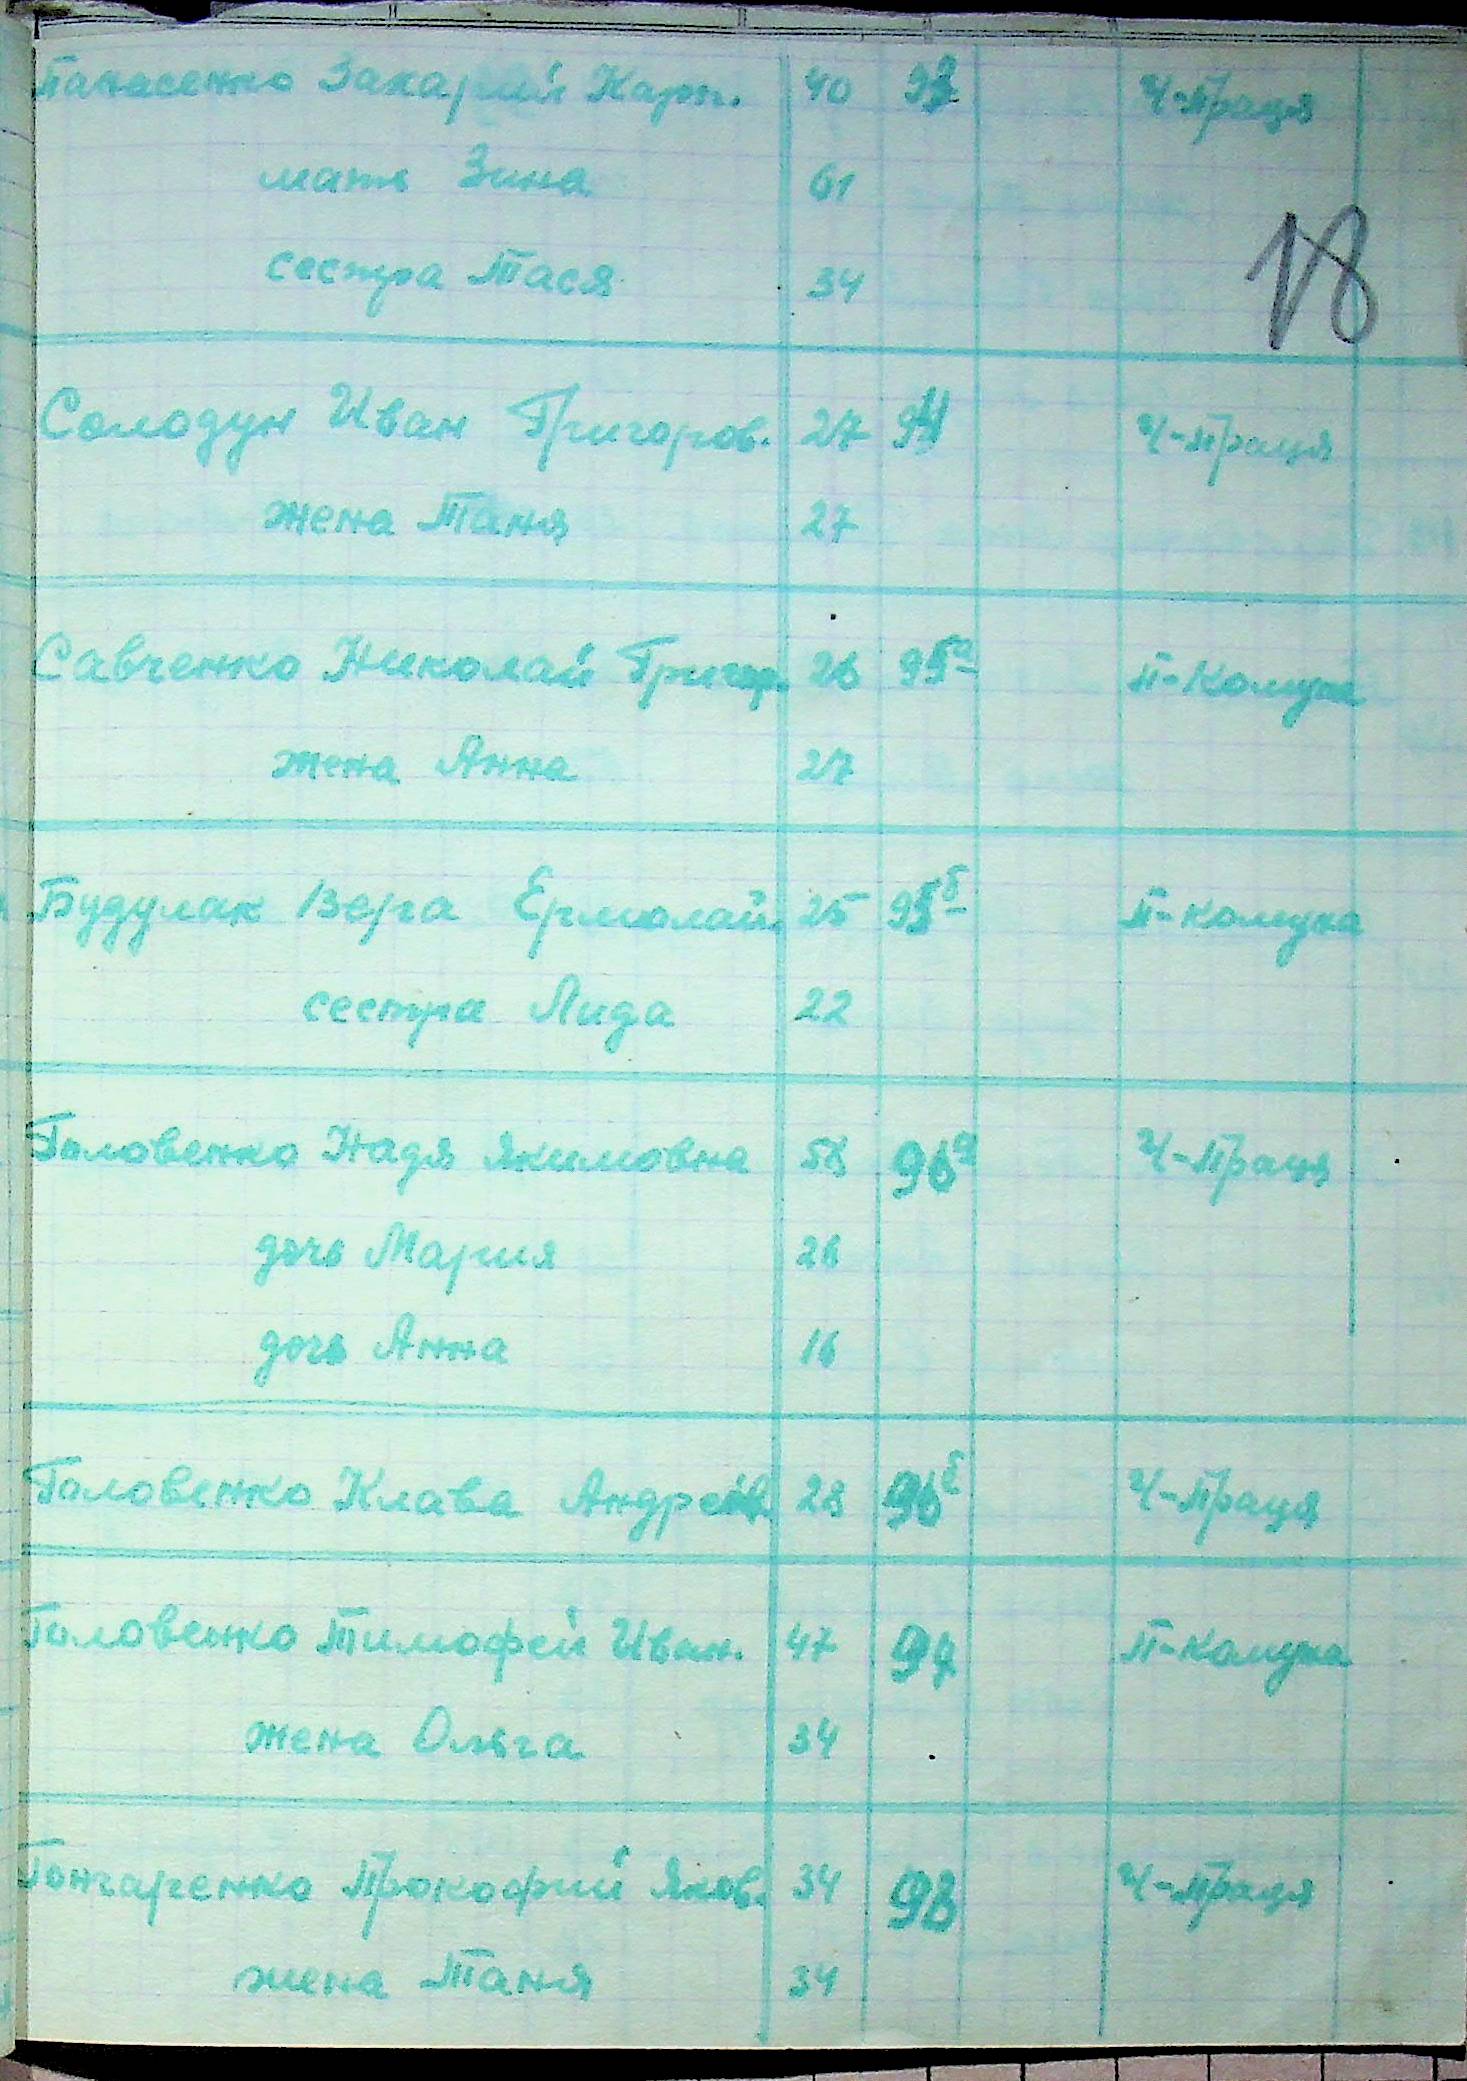 Панасенко Захарий Карп. 40 93 Ч-Праця
мать Зина 61
18
сестра Тася 34
Солодун Иван Григоров. 27 94 Ч-Праця
жена Таня 27
Савченко Николай Григор. 26 95а П-Комуна
жена Анна 27
Будулак Вера Ермолай. 25 95б П-комуна
сестра Лида 22
Головенко Надя Якимовна 58 96а Ч-Праця
дочь Мария 26
дочь Анна 16
Головенко Клава Андреев. 28 96б Ч-Праця
Головенко Тимофей Иван. 47 97 П-Комуна
жена Ольга 34
Гончаренко Прокофий Яков. 34 98 Ч-Праця
жена Таня 34